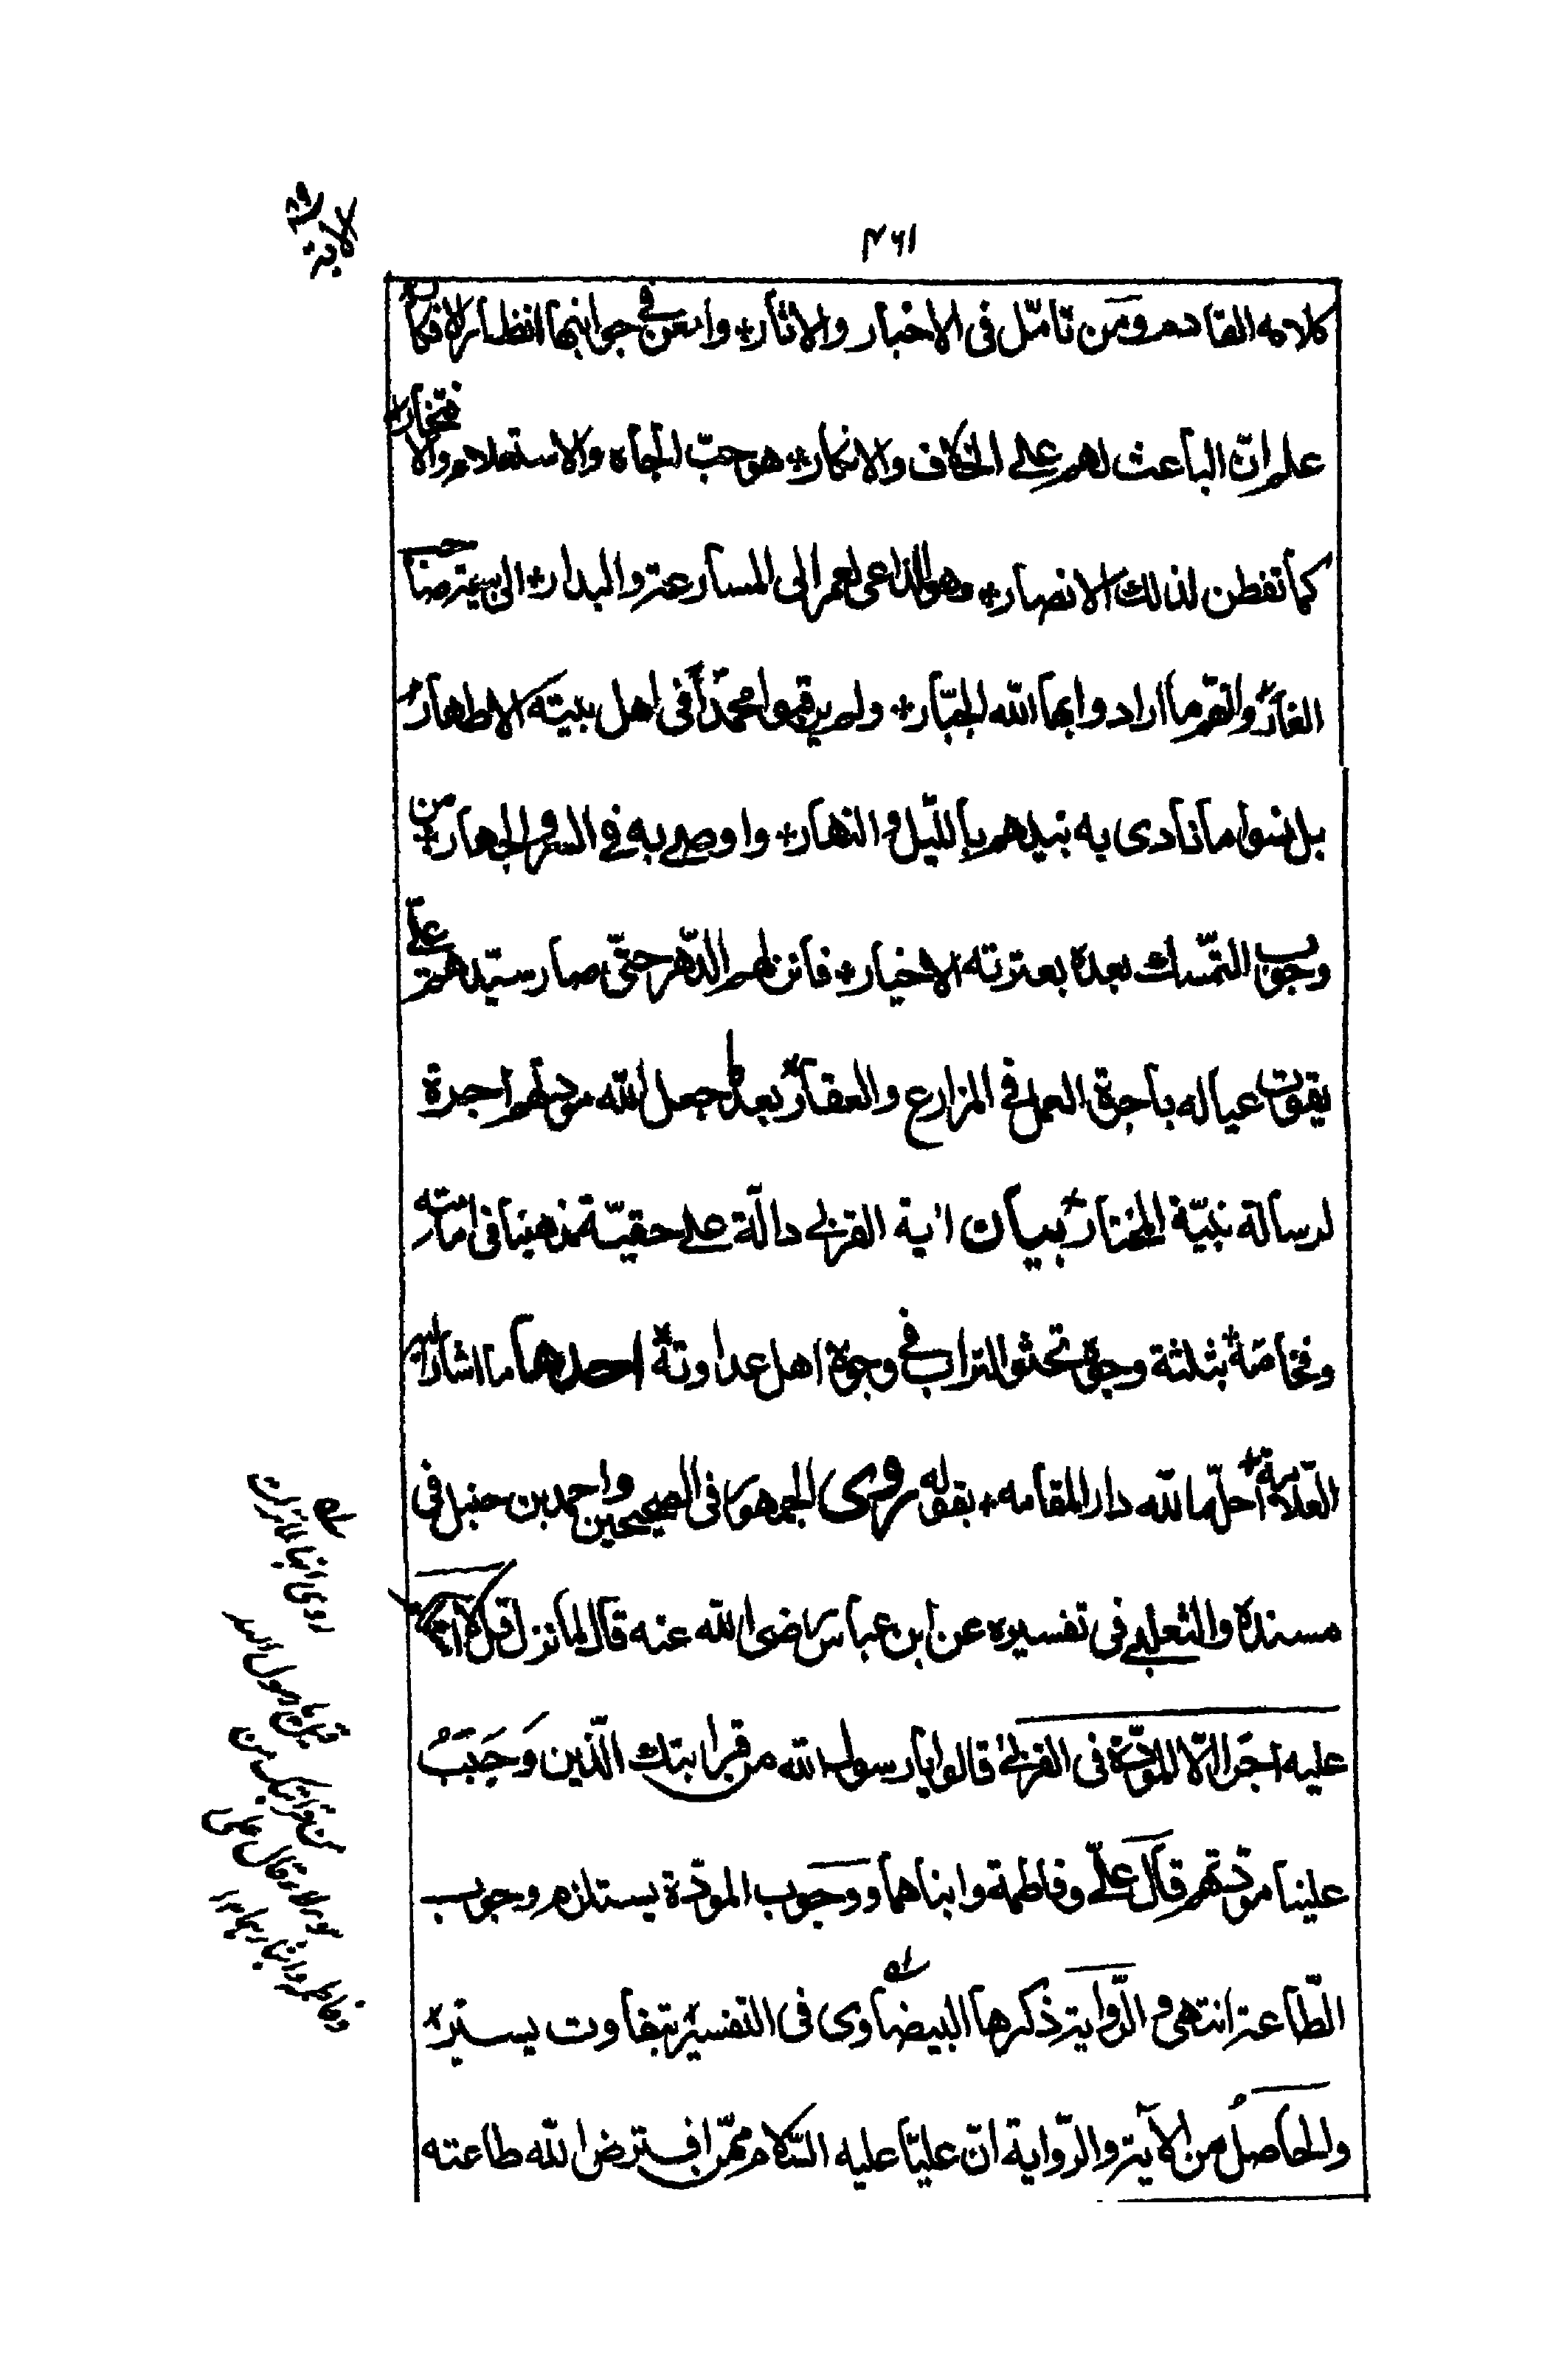 ٤٦١
كلامه القادم ومن تامّل فى الاخبار والاثار وامعن في جوابنها انظار الافكار
علم ان الباعث لهم على الخلاف والانكار هو حبّ الجاه والاستعلاء والافتخار
كما تفطن لذلك الانصار وهو الداعى لعمر الى المسارعة والبدار الى بيعة صاحب
الغار والقوم ما ارادوا بها الله الجبّار ولم يرقبوا محمّداً فى اهل بيته الاطهار
بل نسوا ما نادى به نبيهم بالليل والنهار واوصى به في السر والجهار من
وجوب التمّسك بعده بعترته الاخيار فانزلهم الدّهر حتّى صار سيّدهم علىّ
يقوت عياله باجرة العمل في المزارع والعقار بعد جعل الله مودتهم اجرة
لرسالة نبيّه المختار بيان اية القربى دالّة على حقيّة مذهبنا فى امامته
وفخامته بثلثة وجوه تحثو التراب في وجوه اهل عداوته احدها ما اشار اليه
العلامة احلّه الله دار المقامه بقوله روى الجمهور فى الصحيحين واحمد بن حنبل فى
مسنده والثعلبى فى تفسيره عن ابن عباس رضى الله عنه قال لما نزل قل لا اسئلكم
عليه اجرا الّا المودّة فى القربى قالوا يا رسول الله من قرابتك الّذين وَجَبَتْ
علينا مودّتهم قال علىّ وفاطمة وابناهما ووجوب المودّة يستلزم وجوب
الطّاعة انتهى والرّواية ذكرها البيضاوى فى التفسير بتفاوت يسير
والحاصل من الآية والرّواية انّ عليّا عليه السّلام ممّن افترض الله طاعته
روى انها لما نزلت
قيل يا رسول الله
من قرابتك من
هؤلاء قال على
وفاطمة وابناهما